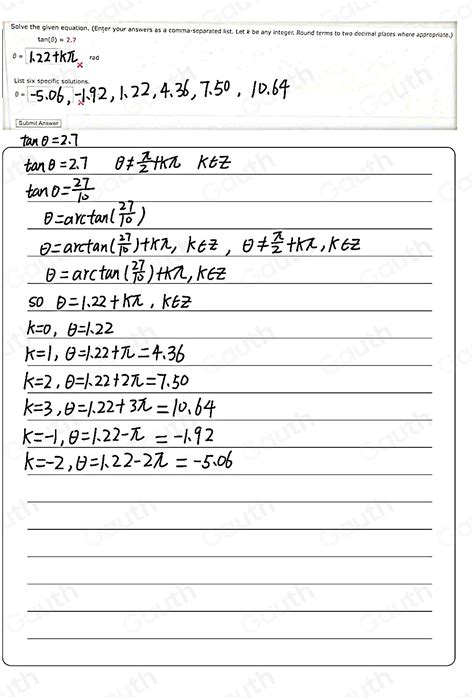 Solve the given equation. (Enter your answers as a comma-separated list. Let k be any integer. Round terms to two decimal places where appropriate.)
tan(θ) = 2.7
θ = 1.22+kπ rad
List six specific solutions.
θ = -5.06, -1.92, 1.22, 4.36, 7.50, 10.64
Submit Answer
tan θ = 2.7
tan θ = 2.7 θ ≠ π/2 + kπ k∈Z
tan θ = 27/10
θ = arctan(27/10)
θ = arctan(27/10) + kπ, k∈Z, θ ≠ π/2 + kπ, k∈Z
θ = arctan(27/10) + kπ, k∈Z
so θ = 1.22 + kπ, k∈Z
k=0, θ=1.22
k=1, θ=1.22+π=4.36
k=2, θ=1.22+2π=7.50
k=3, θ=1.22+3π=10.64
k=-1, θ=1.22-π = -1.92
k=-2, θ=1.22-2π = -5.06
Gauth